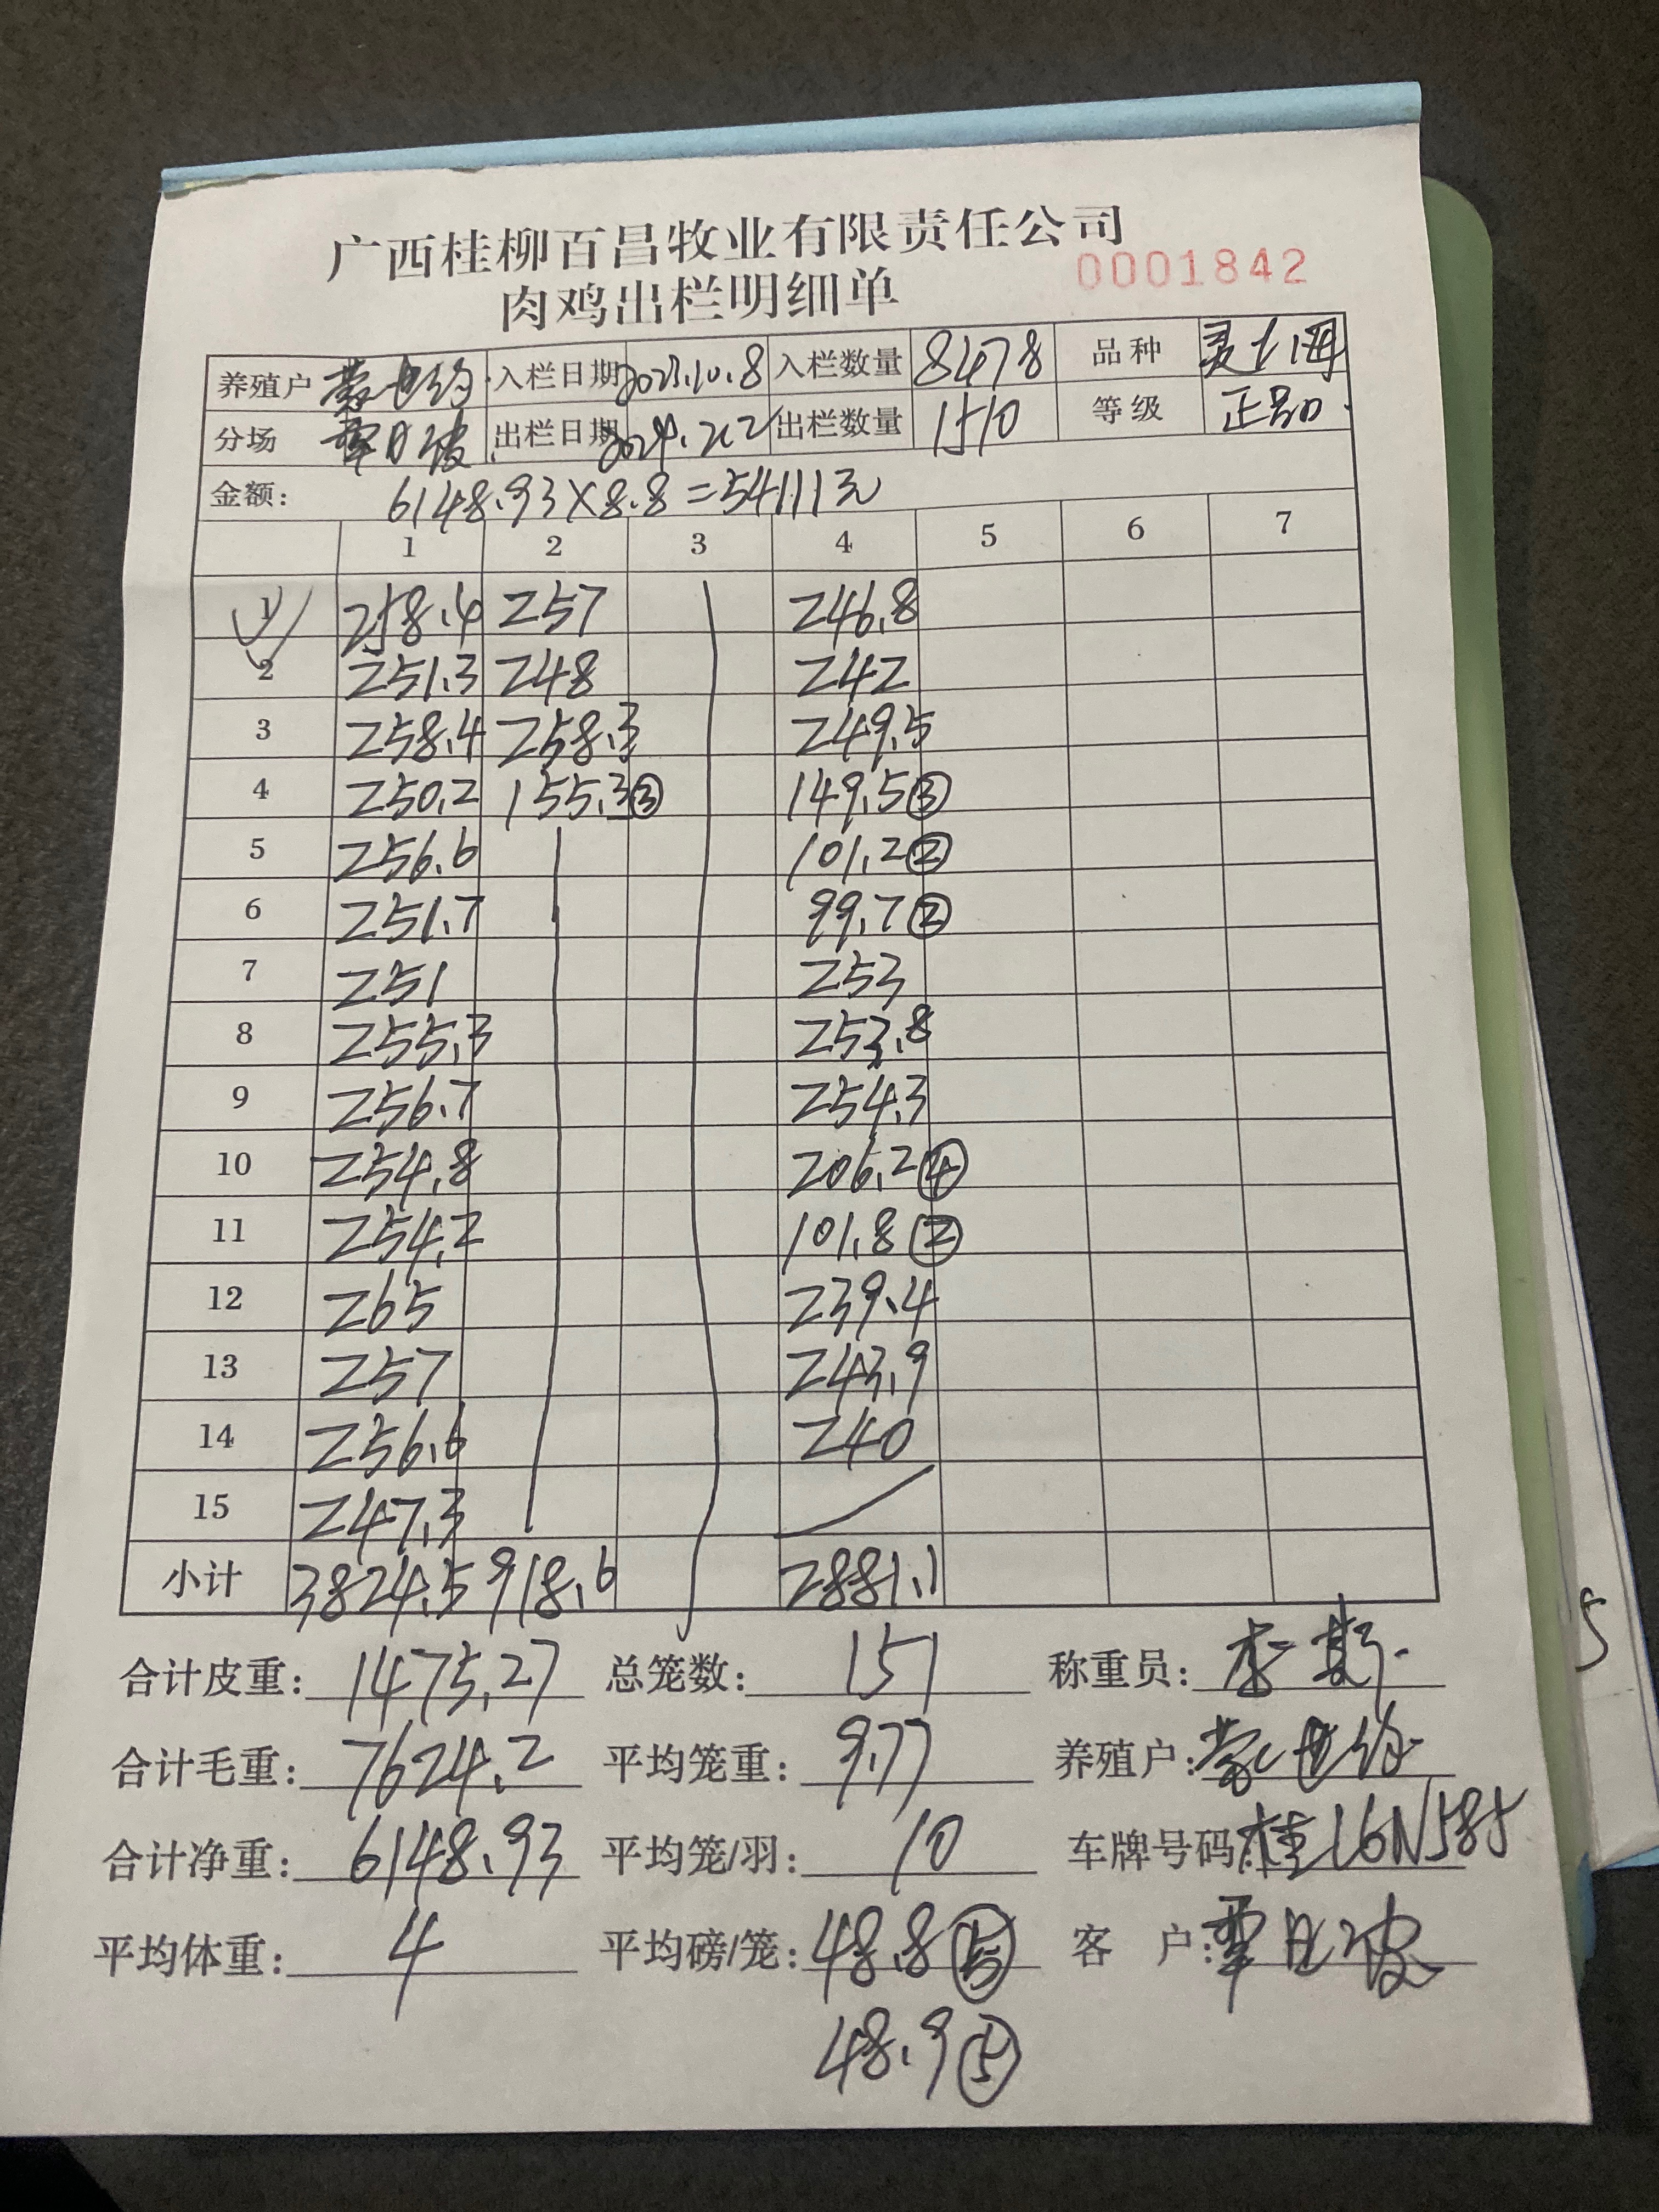 广西桂柳百昌牧业有限责任公司
0001842
肉鸡出栏明细单
养殖户 蒙世约 入栏日期 2023.10.8 入栏数量 8478 品种 灵士
分场 覃日波 出栏日期 2024.2.2 出栏数量 1510 等级 正品
金额: 6148.93×8.8=54111元
1 2 3 4 5 6 7
1 258.4 257 246.8
2 251.3 248 242
3 258.4 258.3 249.5
4 250.2 155.3③ 149.5③
5 256.6 101.2②
6 251.7 99.7②
7 251 253
8 255.3 253.8
9 256.7 254.3
10 254.8 206.2④
11 254.2 101.8②
12 265 239.4
13 257 243.9
14 256.6 240
15 247.3
小计 3824.5 918.6 2881.1
合计皮重: 1475.27 总笼数: 151 称重员: 李
合计毛重: 7624.2 平均笼重: 9.77 养殖户: 蒙世约
合计净重: 6148.93 平均笼/羽: 10 车牌号码: 桂16N585
平均体重: 4 平均磅/笼: 48.8⑤ 客 户: 覃日波
48.9⑤
5